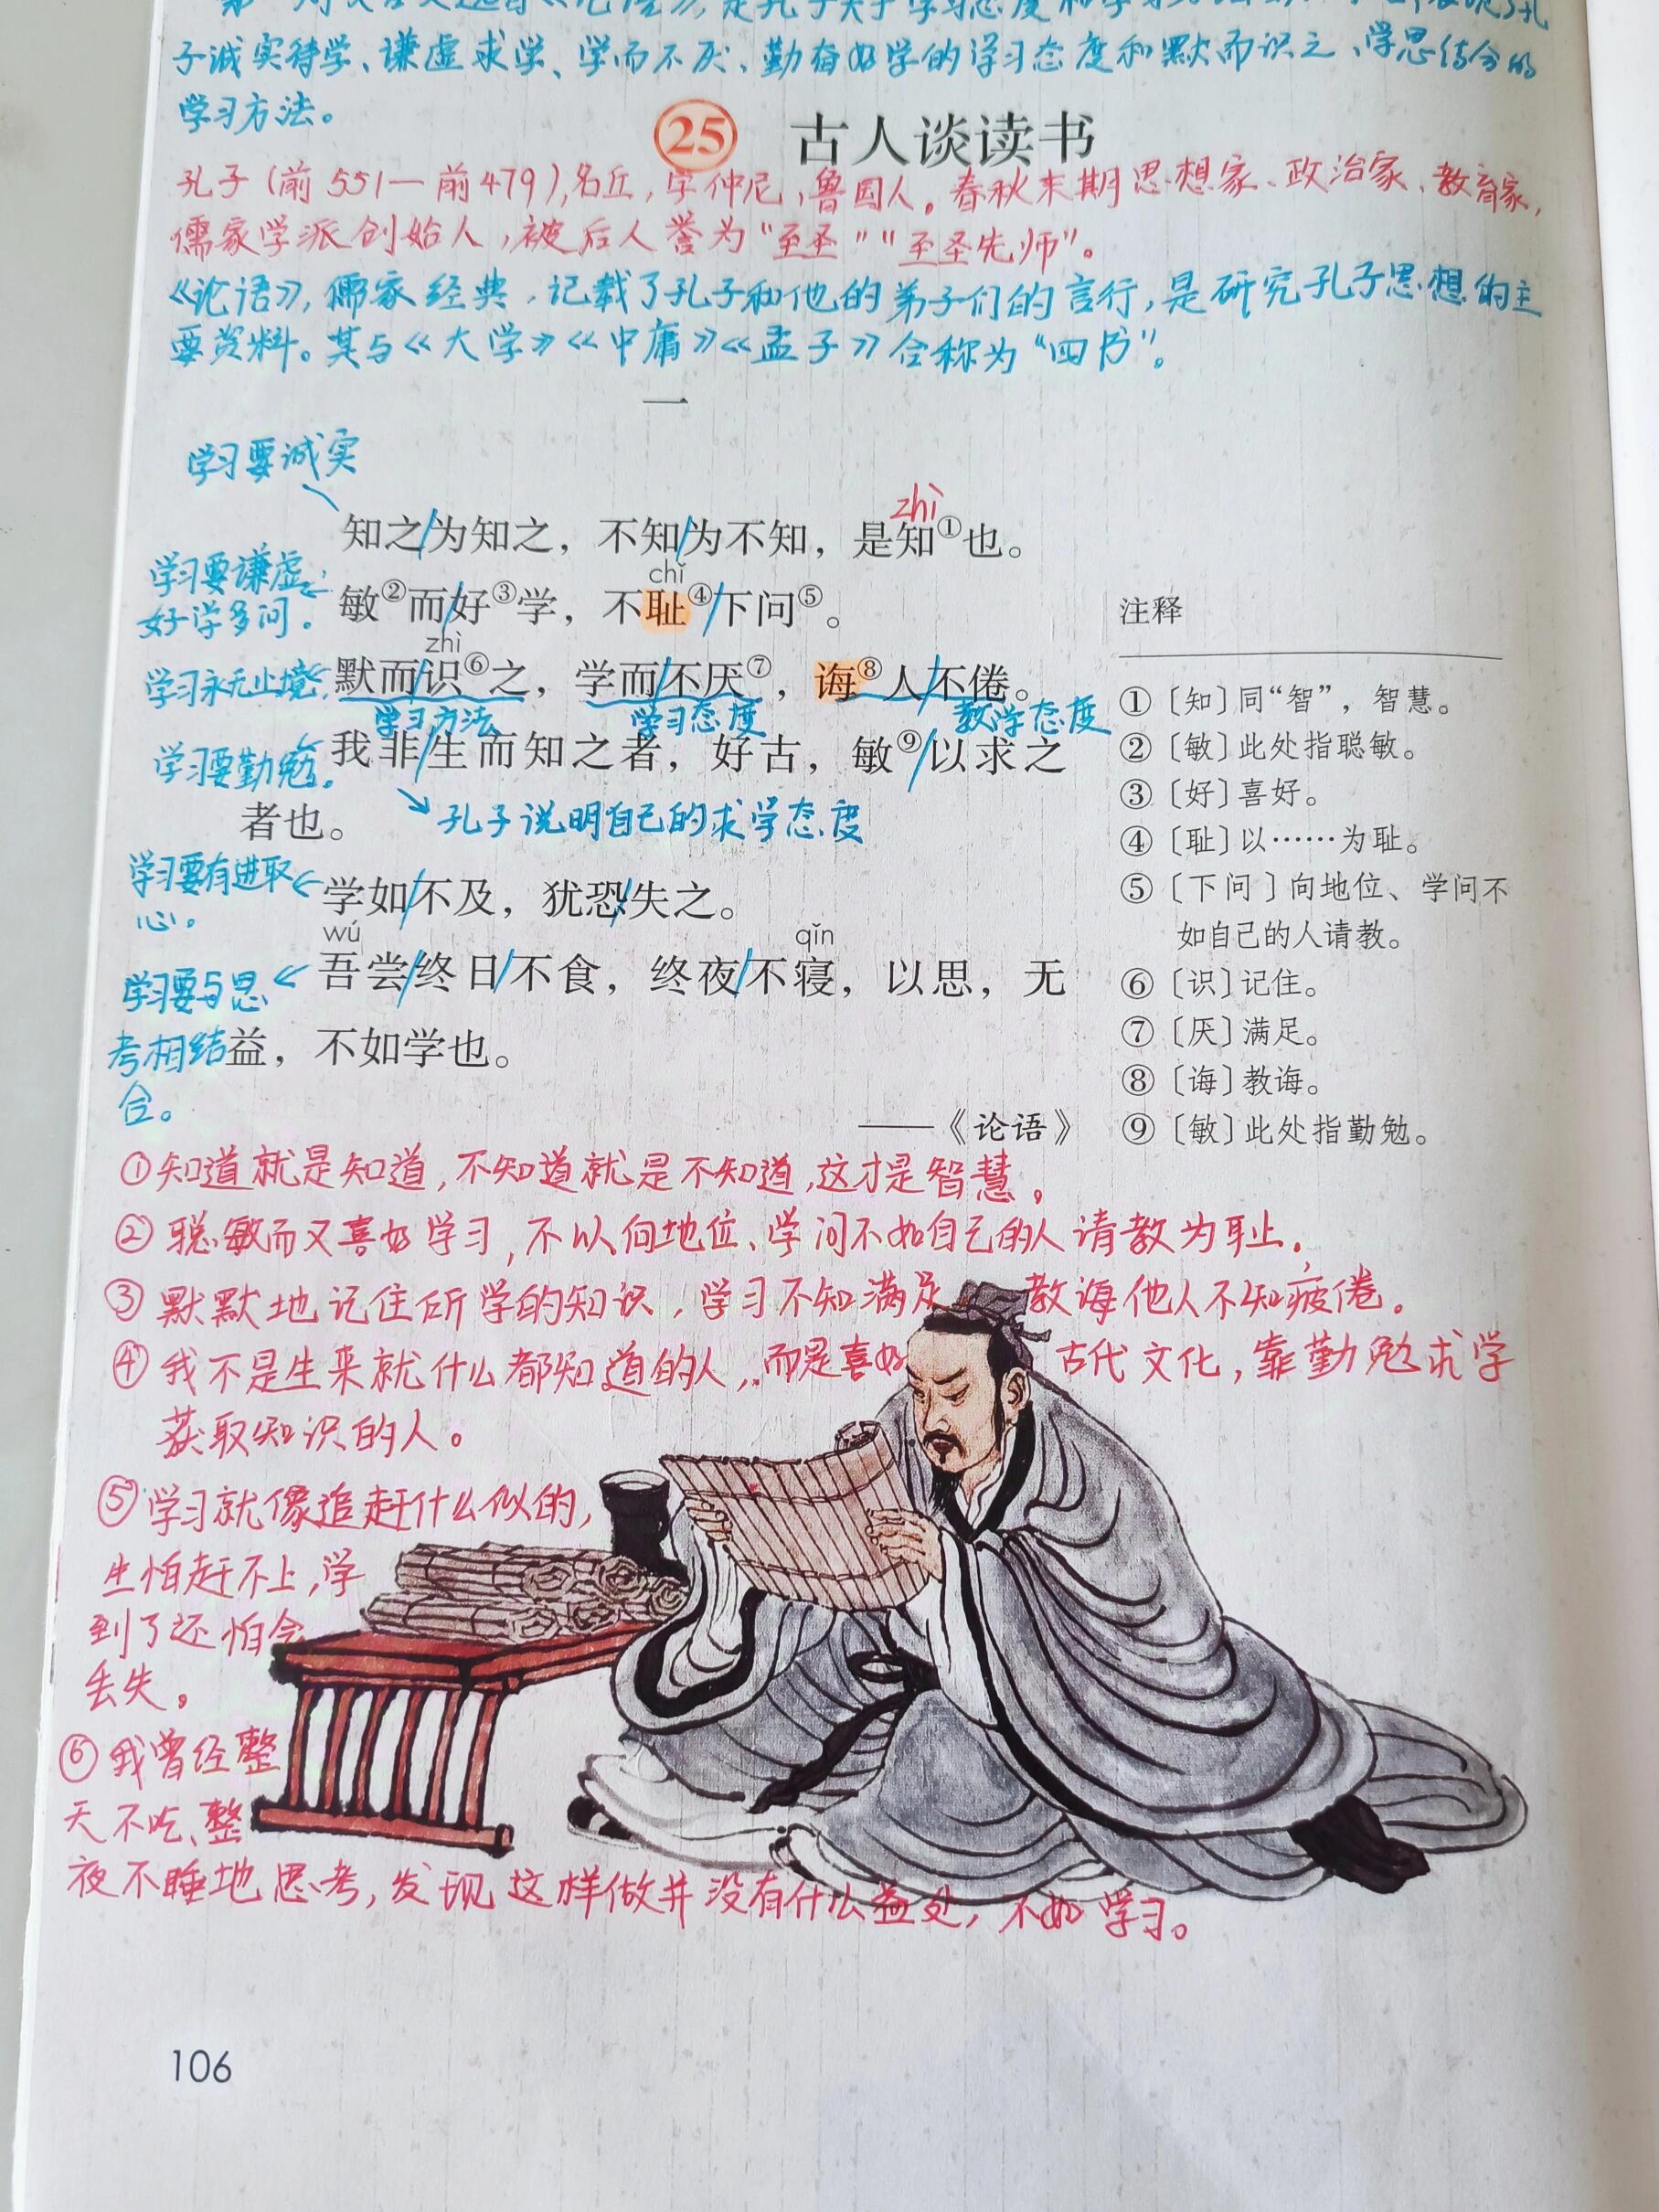 《论语》，是孔子关于学习态度和学习
子诚实待学、谦虚求学、学而不厌、勤奋好学的学习态度和默而识之、学思结合的
学习方法。
25 古人谈读书
孔子(前551—前479),名丘,字仲尼,鲁国人。春秋末期思想家、政治家、教育家,
儒家学派创始人,被后人誉为“至圣”“至圣先师”。
《论语》,儒家经典,记载了孔子和他的弟子们的言行,是研究孔子思想的主
要资料。其与《大学》《中庸》《孟子》合称为“四书”。
一
学习要诚实
zhì
知之/为知之，不知/为不知，是知①也。
chǐ
学习要谦虚
好学多问。
敏②而/好③学，不耻④/下问⑤。
zhì
学习永无止境
默而/识⑥之，学而/不厌⑦，诲⑧人/不倦。
学习方法 学习态度 教学态度
学习要勤勉。
我非/生而知之者，好古，敏⑨/以求之
者也。
孔子说明自己的求学态度
学习要有进取
心。
学如/不及，犹恐/失之。
wú qǐn
吾尝/终日/不食，终夜/不寝，以思，无
益，不如学也。
学习要与思
考相结
合。
——《论语》
注释
①〔知〕同“智”，智慧。
②〔敏〕此处指聪敏。
③〔好〕喜好。
④〔耻〕以……为耻。
⑤〔下问〕向地位、学问不
如自己的人请教。
⑥〔识〕记住。
⑦〔厌〕满足。
⑧〔诲〕教诲。
⑨〔敏〕此处指勤勉。
①知道就是知道,不知道就是不知道,这才是智慧。
②聪敏而又喜好学习,不以向地位、学问不如自己的人请教为耻。
③默默地记住所学的知识,学习不知满足 教诲他人不知疲倦。
④我不是生来就什么都知道的人,而是喜好 古代文化,靠勤勉求学
获取知识的人。
⑤学习就像追赶什么似的,
生怕赶不上,学
到了还怕会
丢失。
⑥我曾经整
天不吃、整
夜不睡地思考,发现这样做并没有什么益处,不如学习。
106